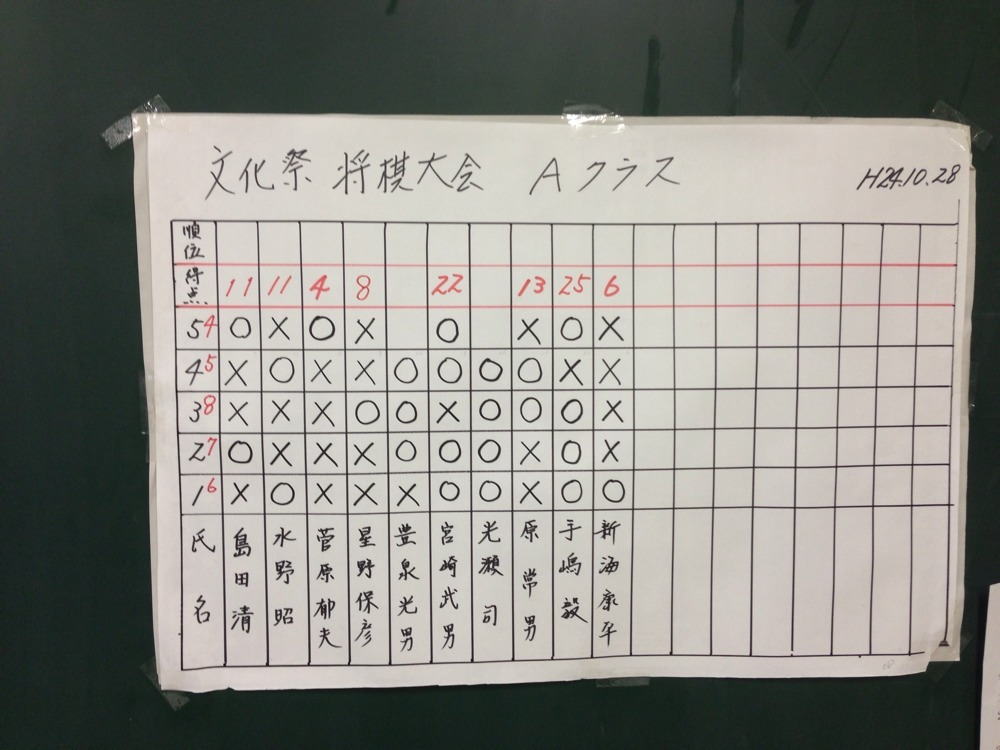 文化祭 将棋大会 Aクラス
H24.10.28
順位
得点 11 11 4 8 22 13 25 6
54 ○ × ○ × ○ × ○ ×
45 × ○ × × ○ ○ ○ ○ × ×
38 × × × ○ ○ × ○ ○ ○ ×
27 ○ × × × ○ ○ ○ × ○ ×
16 × ○ × × × ○ ○ × ○ ○
氏名 島田清 水野昭 菅原郁夫 星野保彦 豊泉光男 宮崎武男 光瀬司 原常男 手嶋毅 新海康平